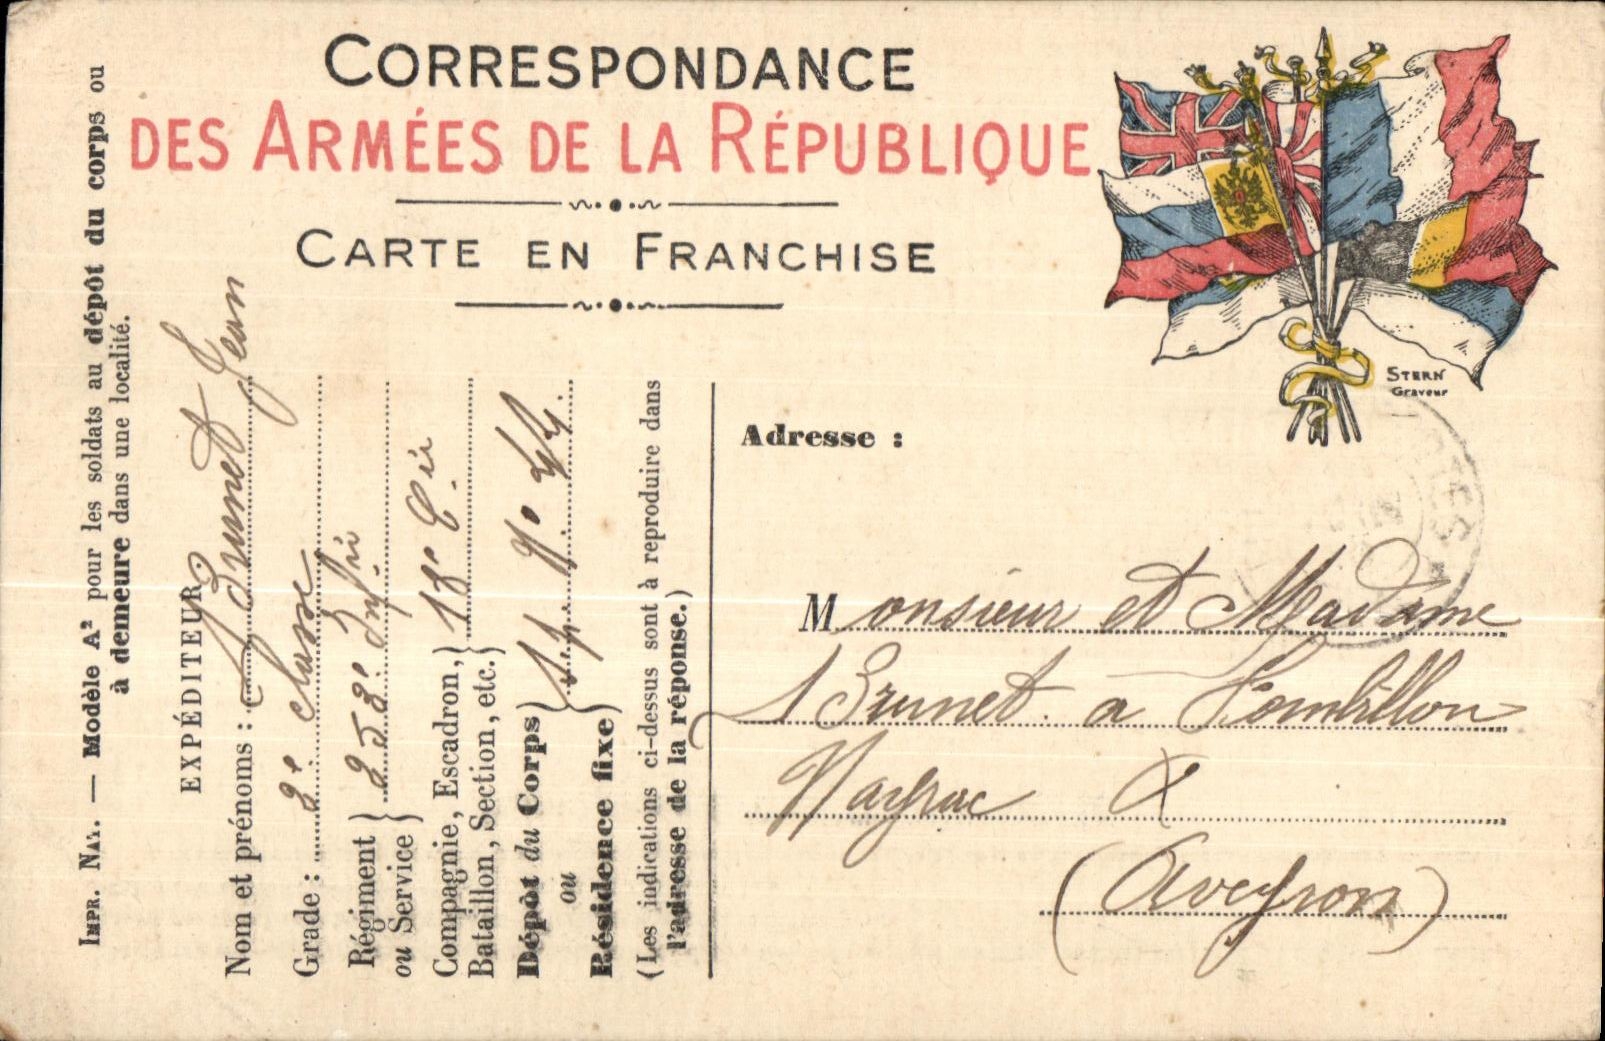 CORRESPONDANCE
DES ARMÉES DE LA RÉPUBLIQUE
CARTE EN FRANCHISE
STERN
Graveur
IMPR. NAT. — Modèle A² pour les soldats au dépôt du corps ou
à demeure dans une localité.
EXPÉDITEUR
Nom et prénoms : Brunet Jean
Grade : 2e classe
Régiment
ou Service } 253e Infie
Compagnie, Escadron,
Bataillon, Section, etc. } 18e Cie
Dépôt du Corps
ou
Résidence fixe } S.P. No
(Les indications ci-dessus sont à reproduire dans
l'adresse de la réponse.)
Adresse :
Monsieur et Madame
Brunet à
Nayrac
(Aveyron)